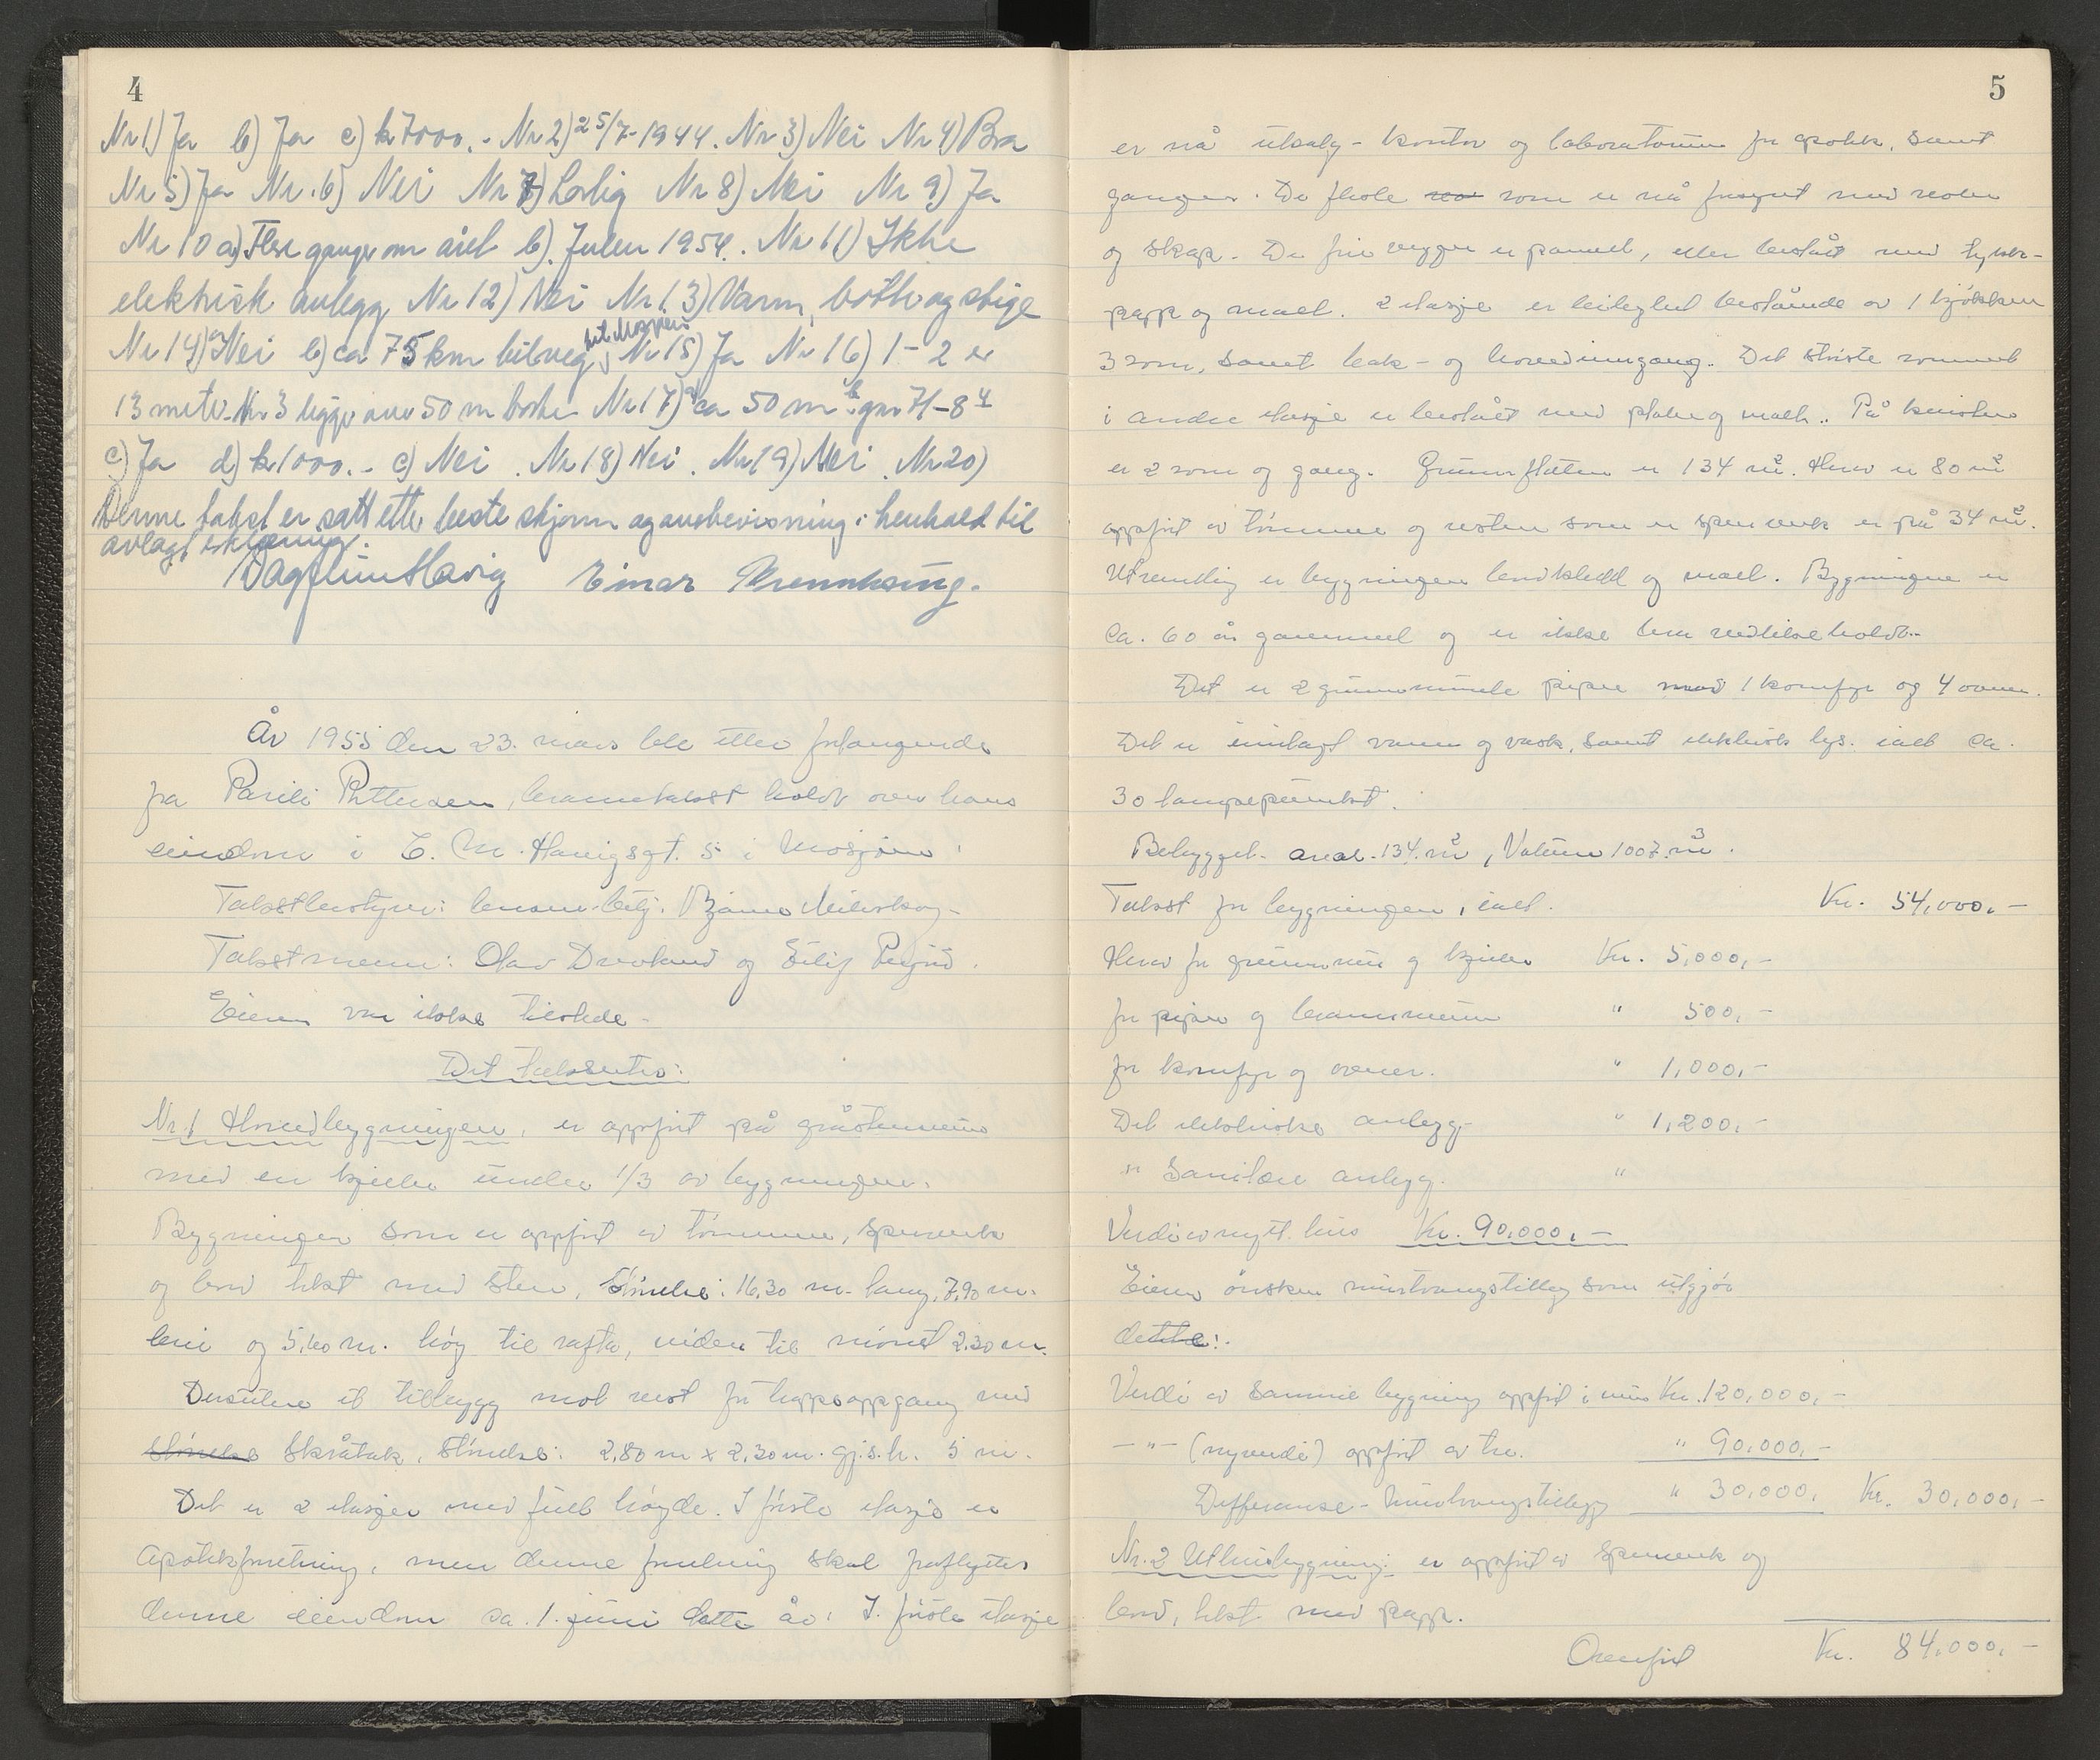 4
Nr 1) Ja b) Ja c) kr 7000.- Nr 2) 25/7-1944. Nr 3) Nei Nr 4) Bra
Nr 5) Ja Nr. 6) Nei Nr 7) Lovlig Nr 8) Nei Nr 9) Ja
Nr 10 a) Flere ganger om året b). Julen 1954. Nr 11) Ikke
elektrisk anlegg Nr 12) Nei Nr 13) Vann, bøtte og stige
til Mosjøen
Nr 14) a) Nei b) ca 75 km bilveg, Nr 15) Ja Nr 16) 1-2 er
13 meter. Nr 3 ligger over 50 m borte Nr 17) a) ca 50 m b. gnr 71-84
c) Ja d) kr 1000.- e) Nei. Nr 18) Nei. Nr 19) Nei. Nr 20)
Denne takst er satt etter beste skjønn og overbevisning i henhold til
avlagt erklæring.
Dagfinn Havig Einar
År 1955 den 23. mars ble etter forlangende
fra Pettersen, branntakst holdt over hans
eiendom i C. M. Havigsgt. 5 i Mosjøen.
Takstbestyrer: lensm. betj. Bjarne
Takstmenn: Olav Drevland og Eilif
Eieren var ikke tilstede.
Det takseres:
Nr. 1 Hovedbygningen, er oppført på gråstensmur
med en kjeller under 1/3 av bygningen.
Bygningen som er oppført av tømmer, spennverk
og bord tekt med sten, Størrelse: 16,30 m. lang, 7,90 m.
brei og 5,60 m. høg til rafta, videre til mønet 2.30 m.
Dessuten et tilbygg mot vest for trappeoppgang med
størrelse skråtak, størrelse: 2,80 m x 2,30 m. gj.s.h. 5 m.
Det er 2 etasjer med full høgde. I første etasje er
apotekforretning, men denne forretning skal fraflyttes
denne eiendom ca. 1. juni dette år. I første etasje
5
er nå utsalg- kontor og laboratorium for apotek, samt
ganger. De fleste som er nå forsynt med reoler
og skap. De frie vegger er panel, eller beslått med tykk-
papp og malt. 2 etasje er leilighet bestående av 1 kjøkken
3 rom, samt bak- og hovedinngang. Det største rommet
i andre etasje er beslått med plater og malt. På kvisten
er 2 rom og gang. Grunnflaten er 134 m². Herav er 80 m²
oppført av tømmer og resten som er spennverk er på 34 m².
Utvendig er bygningen bordkledd og malt. Bygningen er
ca. 60 år gammel og er ikke bra vedlikeholdt.
Det er 2 grunnmurte piper med 1 komfyr og 4 ovner.
Det er innlagt vann og vask, samt elektrisk lys. ialt ca.
30 lampepunkt.
Bebygget areal 134 m², Volum 1007 m³.
Takst for bygningen, ialt. Kr. 54,000.-
Herav for grunnmur og kjeller Kr. 5,000,-
for piper og brannmurer " 500,-
for komfyr og ovner. " 1,000,-
Det elektriske anlegg " 1,200.-
" Sanitære anlegg. "
Verdi av nytt hus Kr. 90,000.-
Eieren ønsker murtvangstillegg som utgjør
dette:
Verdi av samme bygning oppført i mur Kr. 120,000,-
-"- (nyverdi) oppført av tre. " 90,000,-
Differanse - Murtvangstillegg " 30,000, Kr. 30,000,-
Nr. 2 Uthusbygning: er oppført av spennverk og
bord, tekt med papp.
Overført Kr. 84,000,-